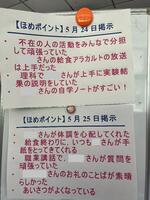 【ほめポイント】5月24日掲示
不在の人の活動をみんなで分担
して頑張っていた
さんの給食アラカルトの放送
は上手だった
理科で さんが上手に実験結
果の説明をしていた
さんの自学ノートがすごい!
【ほめポイント】5月25日掲示
さんが体調を心配してくれた
給食終わりに、いつも さんが手
伝ってきてくれる
職業講話で、 さんが質問を
頑張っていた
さんのお礼のことばが素晴
らしかった
あいさつがよくなっている